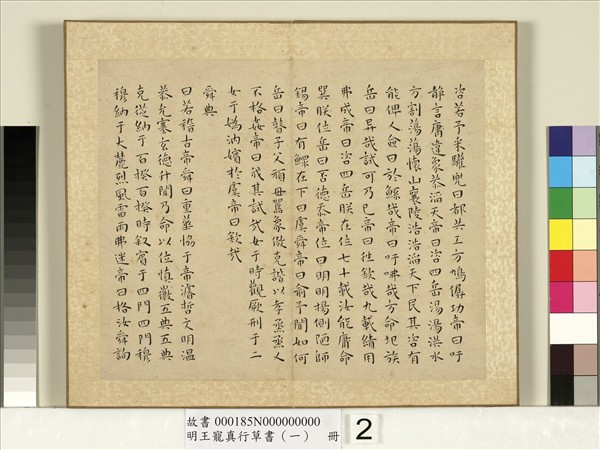 咨若予采驩兜曰都共工方鳩僝功帝曰吁
靜言庸違象恭滔天帝曰咨四岳湯湯洪水
方割蕩蕩懷山襄陵浩浩滔天下民其咨有
能俾人僉曰於鯀哉帝曰吁咈哉方命圯族
岳曰异哉試可乃已帝曰往欽哉九載績用
弗成帝曰咨四岳朕在位七十載汝能庸命
巽朕位岳曰否德忝帝位曰明明揚側陋師
錫帝曰有鰥在下曰虞舜帝曰俞予聞如何
岳曰瞽子父頑母嚚象傲克諧以孝烝烝乂
不格姦帝曰我其試哉女于時觀厥刑于二
女于媯汭嬪于虞帝曰欽哉
舜典
曰若稽古帝舜曰重華恊于帝濬哲文明溫
恭允塞玄德升聞乃命以位慎徽五典五典
克從納于百揆百揆時敘賓于四門四門穆
穆納于大麓烈風雷雨弗迷帝曰格汝舜詢
故書 000185N000000000
明王寵真行草書（一） 冊
2